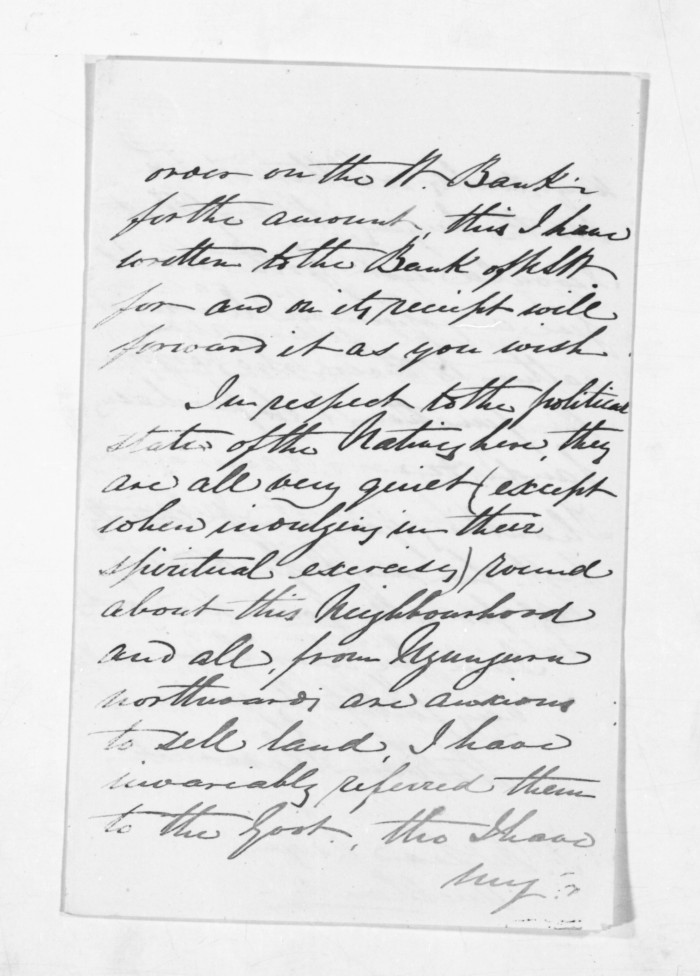 order on the N. Bank
for the amount, this I have
written to the Bank of NSW.
for and on its receipt will
forward it as you wish.
In respect to the political
state of the Natives here, they
are all very quiet (except
when indulging in their
spiritual exercises) round
about this Neighbourhood
and all, from Ngunguru
northwards are anxious
to sell land, I have
invariably referred them
to the Govt., tho I have
my